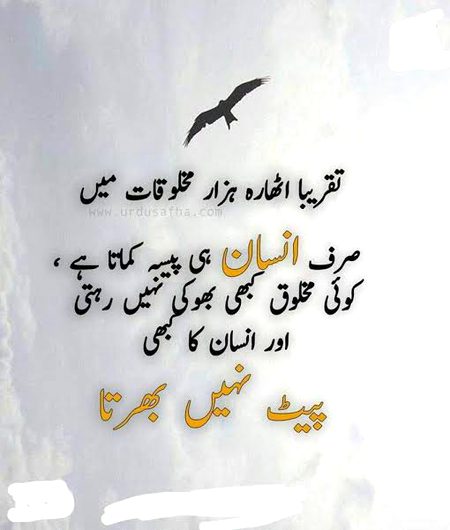 تقریبا اٹھارہ ہزار مخلوقات میں
www.urdusafha.com
صرف انسان ہی پیسہ کماتا ہے ،
کوئی مخلوق کبھی بھوکی نہیں رہتی
اور انسان کا کبھی
پیٹ نہیں بھرتا